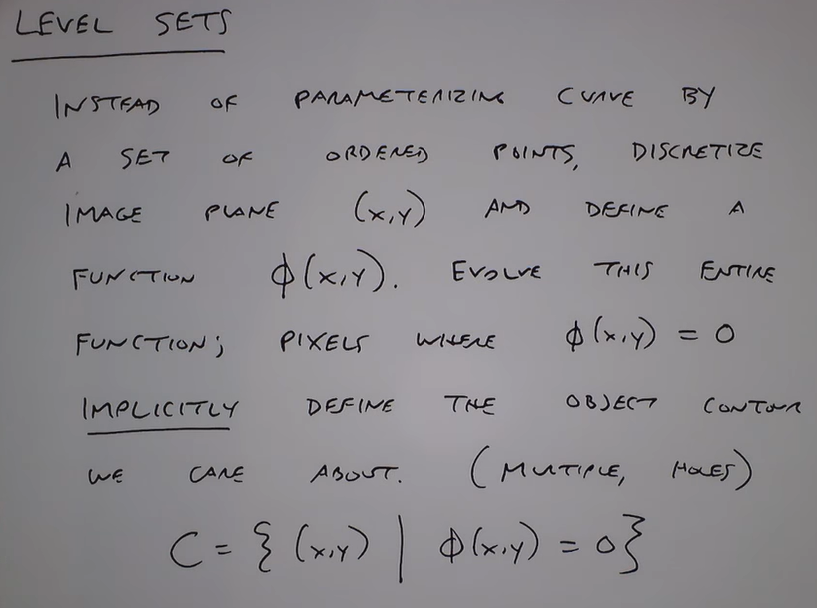 LEVEL SETS
INSTEAD OF PARAMETERIZING CURVE BY
A SET OF ORDERED POINTS, DISCRETIZE
IMAGE PLANE (x,y) AND DEFINE A
FUNCTION ϕ(x,y). EVOLVE THIS ENTIRE
FUNCTION; PIXELS WHERE ϕ(x,y) = 0
IMPLICITLY DEFINE THE OBJECT CONTOUR
WE CARE ABOUT. (MULTIPLE, HOLES)
C = { (x,y) | ϕ(x,y) = 0 }